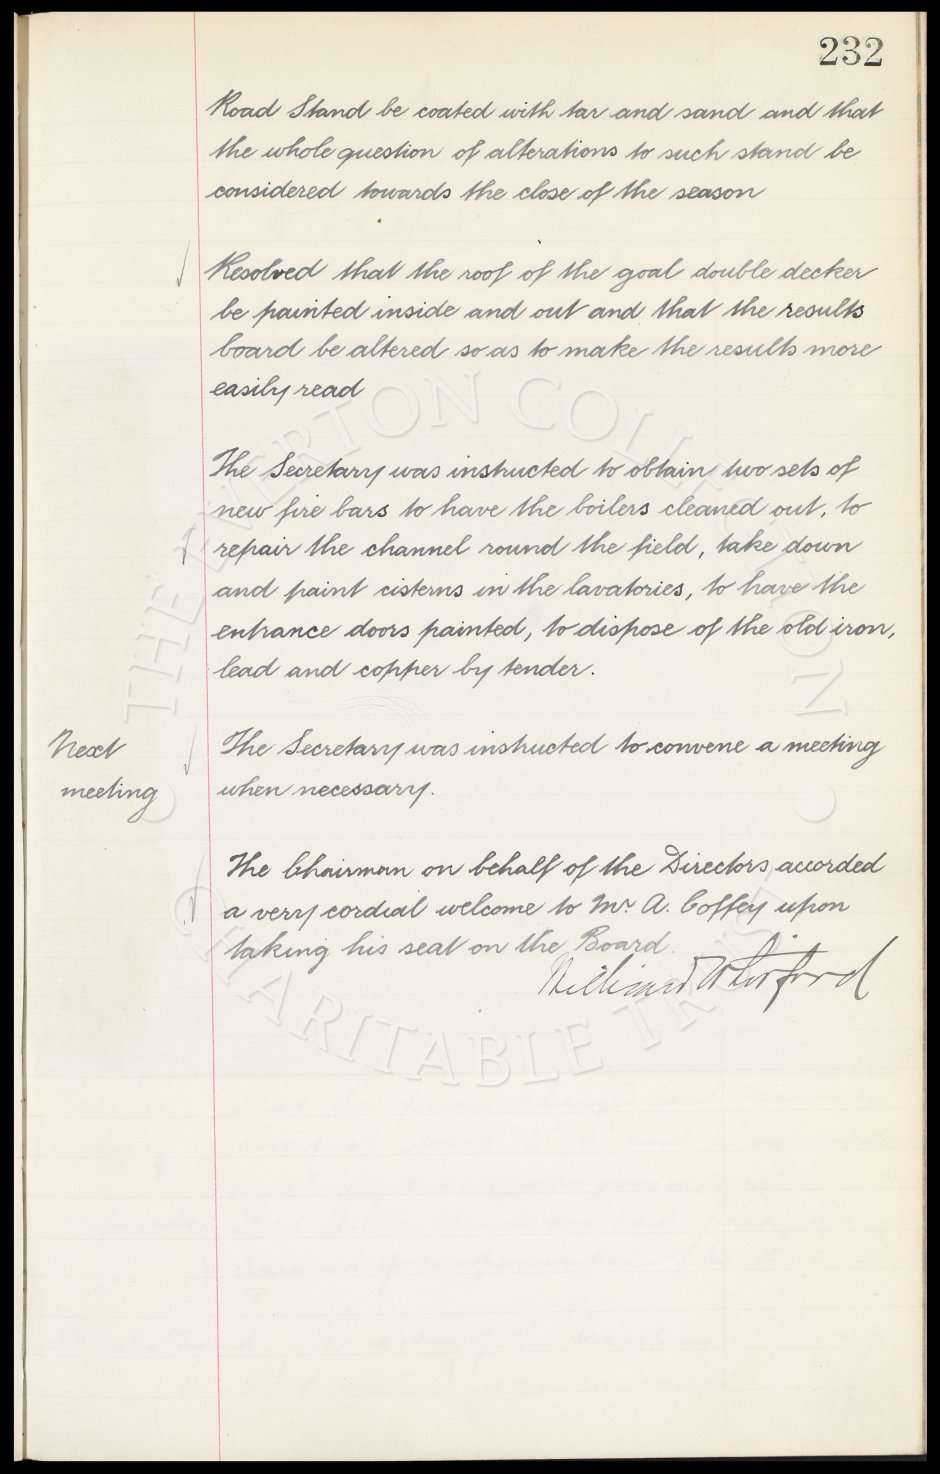 232
Road Stand be coated with tar and sand and that
the whole question of alterations to such stand be
considered towards the close of the season
Resolved that the roof of the goal double decker
be painted inside and out and that the results
board be altered so as to make the results more
easily read
The Secretary was instructed to obtain two sets of
new fire bars to have the boilers cleaned out, to
repair the channel round the field, take down
and paint cisterns in the lavatories, to have the
entrance doors painted, to dispose of the old iron,
lead and copper by tender.
Next
meeting
The Secretary was instructed to convene a meeting
when necessary.
The Chairman on behalf of the Directors accorded
a very cordial welcome to Mr. A. Coffey upon
taking his seat on the Board
THE EVERTON COLLECTION
CHARITABLE TRUST